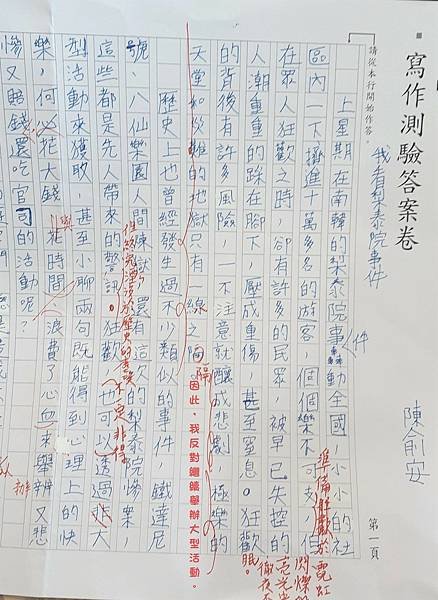 寫作測驗答案卷
陳俞安
第一頁
請從本行開始作答。
我看梨泰院事件
上星期在南韓的梨泰院事件動全國,小小的社
區內一下擠進十萬多名的游客,個個樂不可支,但
在眾人狂歡之時,卻有許多的民眾,被早已失控的
人潮重重的踩在腳下,壓成重傷甚至窒息。狂歡
的背後有許多風險,一不注意就釀成悲劇,極樂的
天堂如災難的地獄只有一線之隔
因此,我反對繼續舉辦大型活動。
歷史上也曾經發生過不少類似的事件,鐵達尼
號、八仙樂園人間煉獄,還有這次的梨泰院慘案,
這些都是先人帶來的警訊。狂歡,也可以透過非大
不一定非得
型活動來獲取,甚至小聊兩句既能得到心理上的快
樂,何必花大錢與花時間,浪費了心血來舉辦又悲
慘又賠錢還吃官司的活動呢?